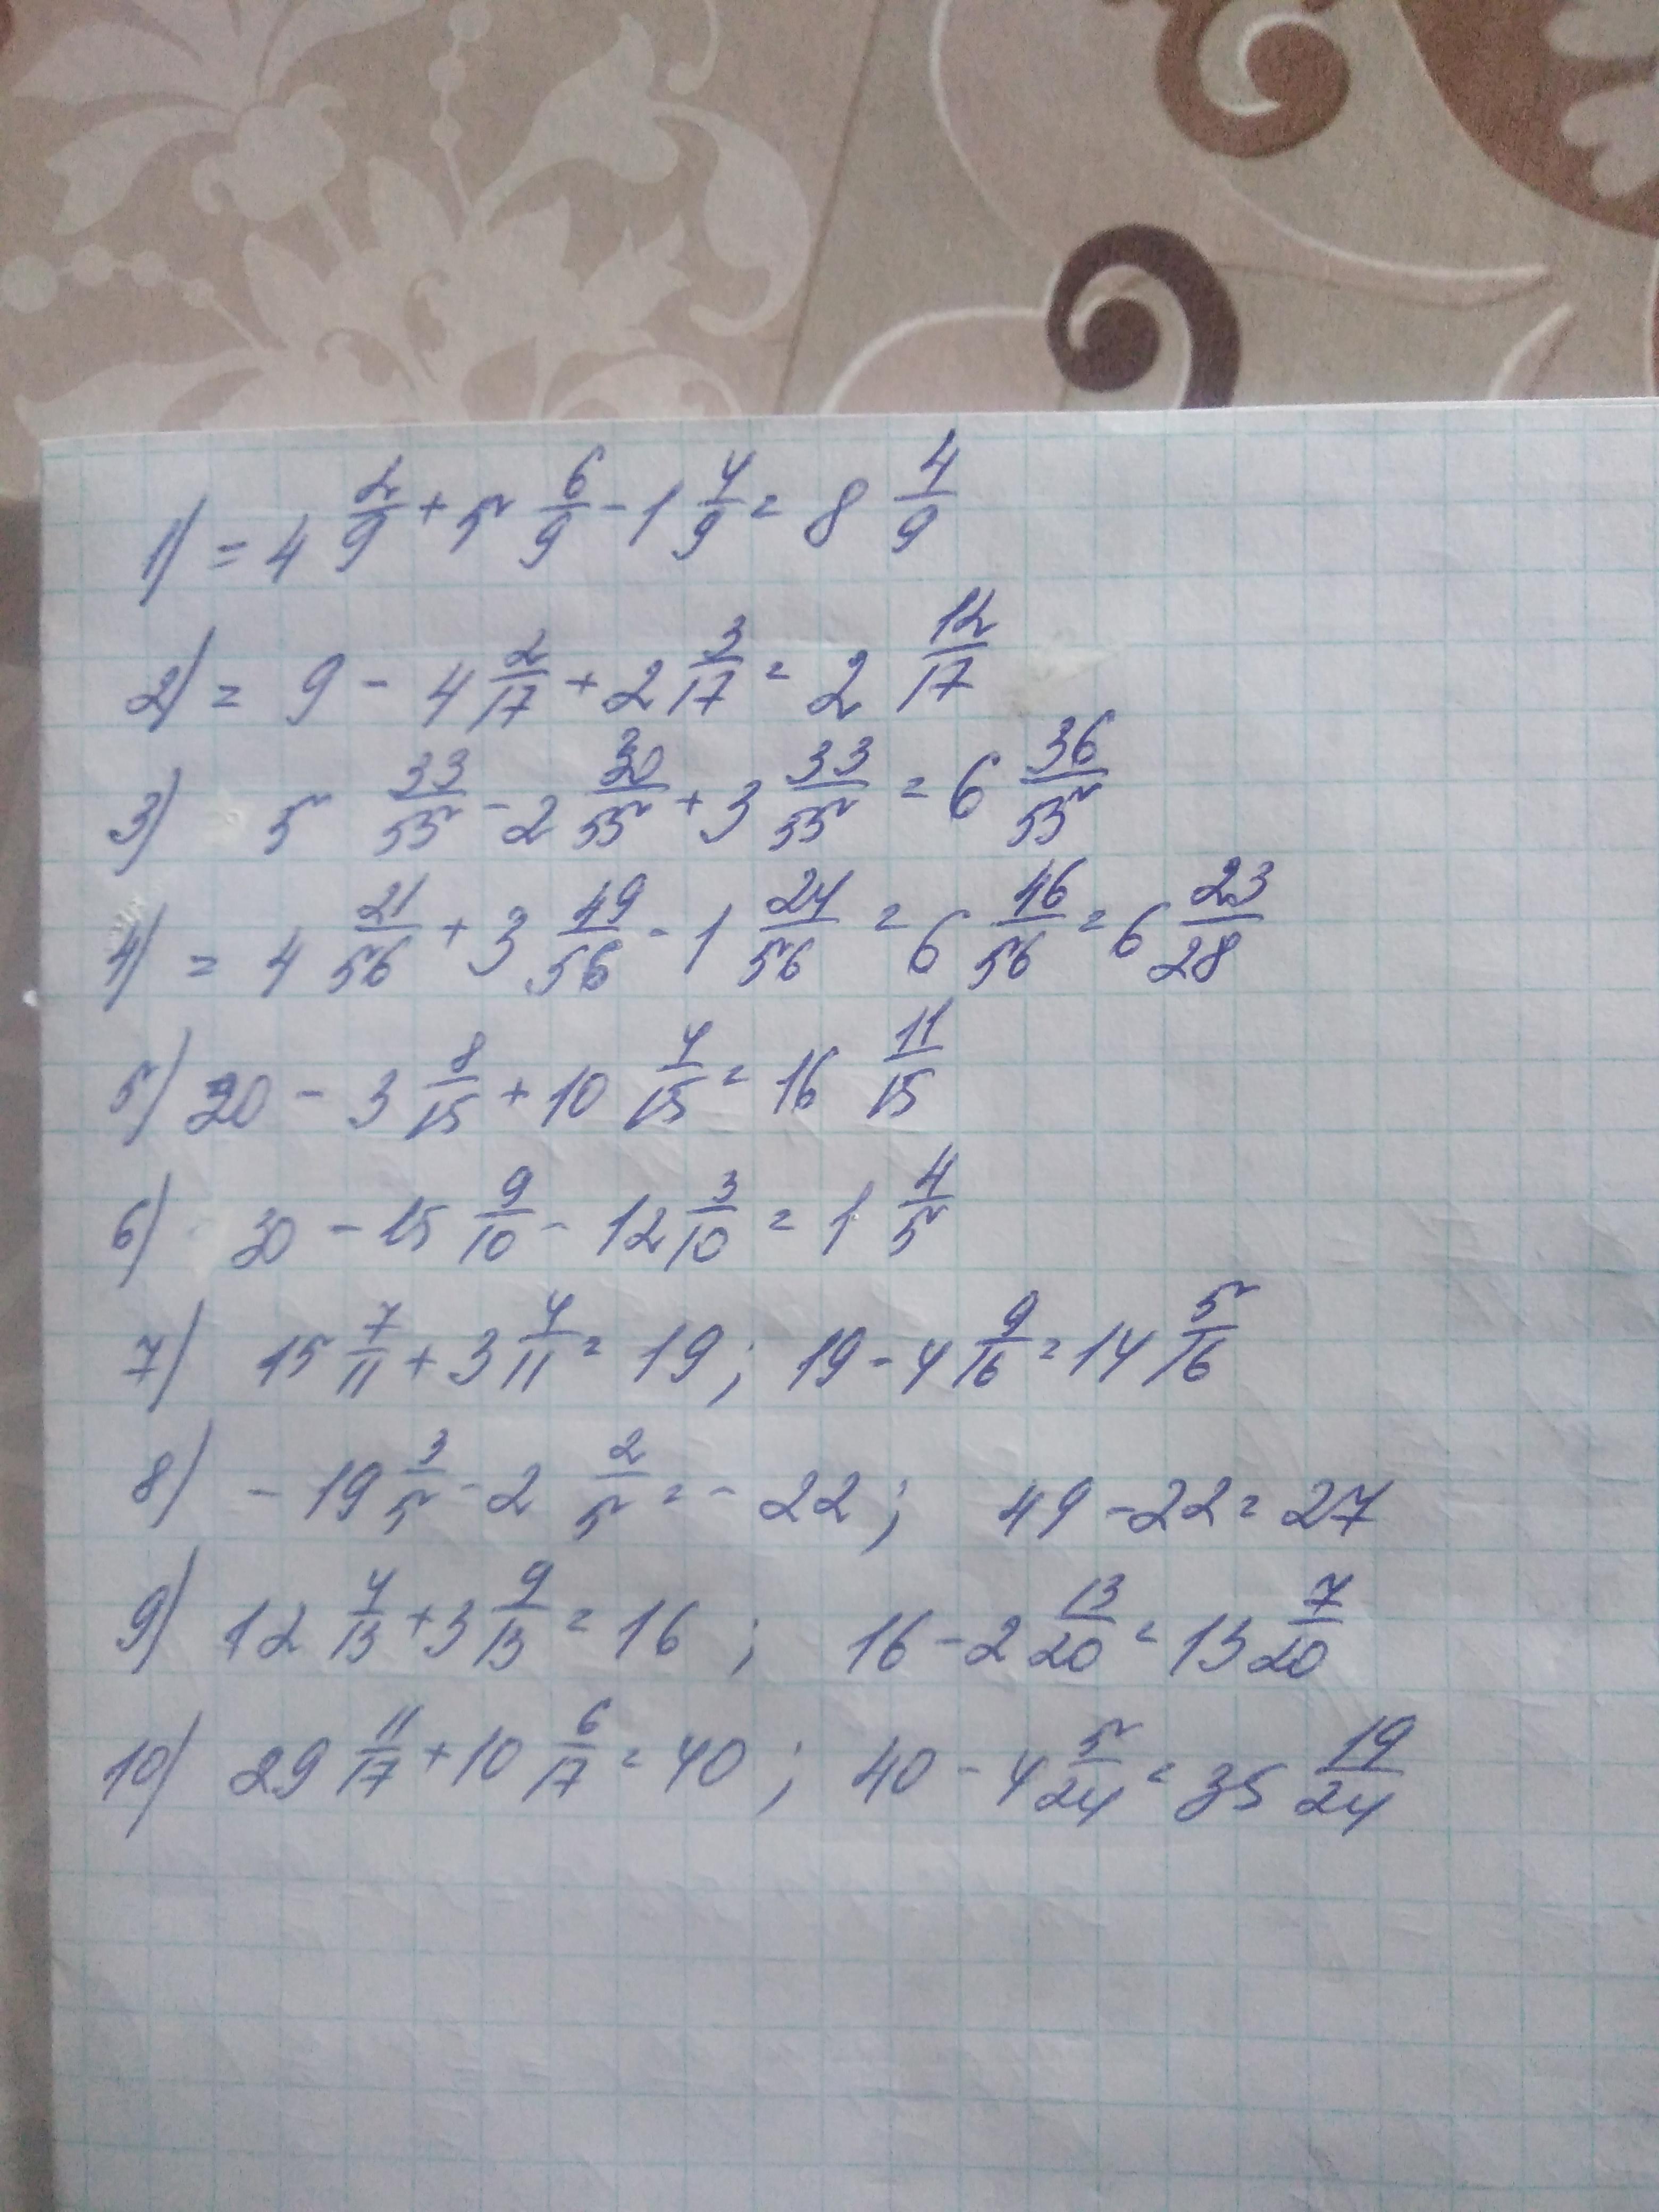 1) = 4 2/9 + 5 6/9 - 1 4/9 = 8 4/9
2) = 9 - 4 2/17 + 2 3/17 = 2 12/17
3) 5 33/55 - 2 30/55 + 3 33/55 = 6 36/55
4) = 4 21/56 + 3 49/56 - 1 24/56 = 6 46/56 = 6 23/28
5) 20 - 3 8/15 + 10 4/15 = 16 11/15
6) 30 - 15 9/10 - 12 3/10 = 1 4/5
7) 15 7/11 + 3 4/11 = 19; 19 - 4 9/16 = 14 5/16
8) - 19 3/5 - 2 2/5 = - 22; 49 - 22 = 27
9) 12 4/13 + 3 9/13 = 16; 16 - 2 13/20 = 13 7/20
10) 29 11/17 + 10 6/17 = 40; 40 - 4 5/24 = 35 19/24